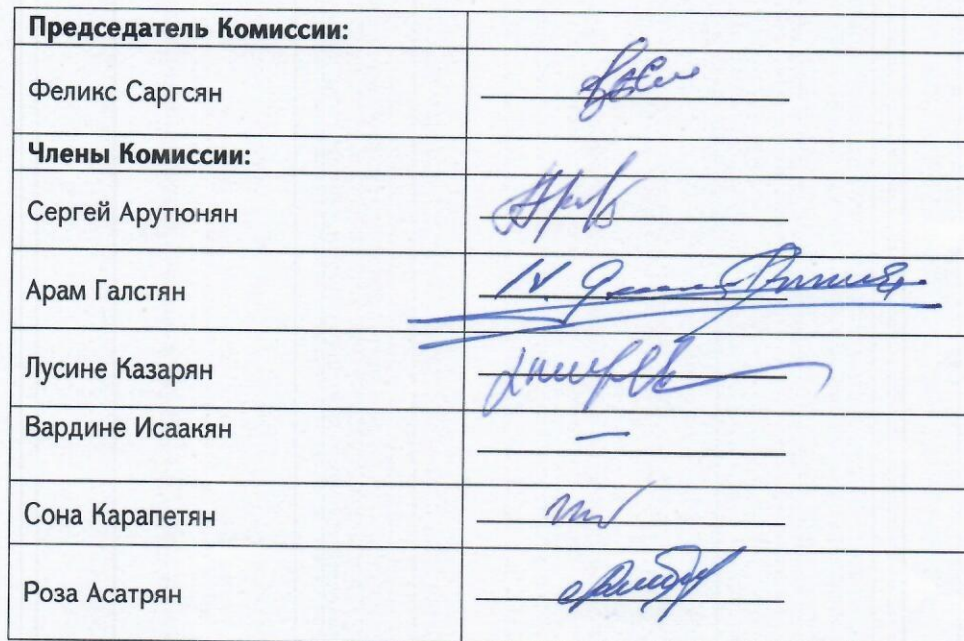 Председатель Комиссии:
Феликс Саргсян
Члены Комиссии:
Сергей Арутюнян
Арам Галстян
Лусине Казарян
Вардине Исаакян
Сона Карапетян
Роза Асатрян